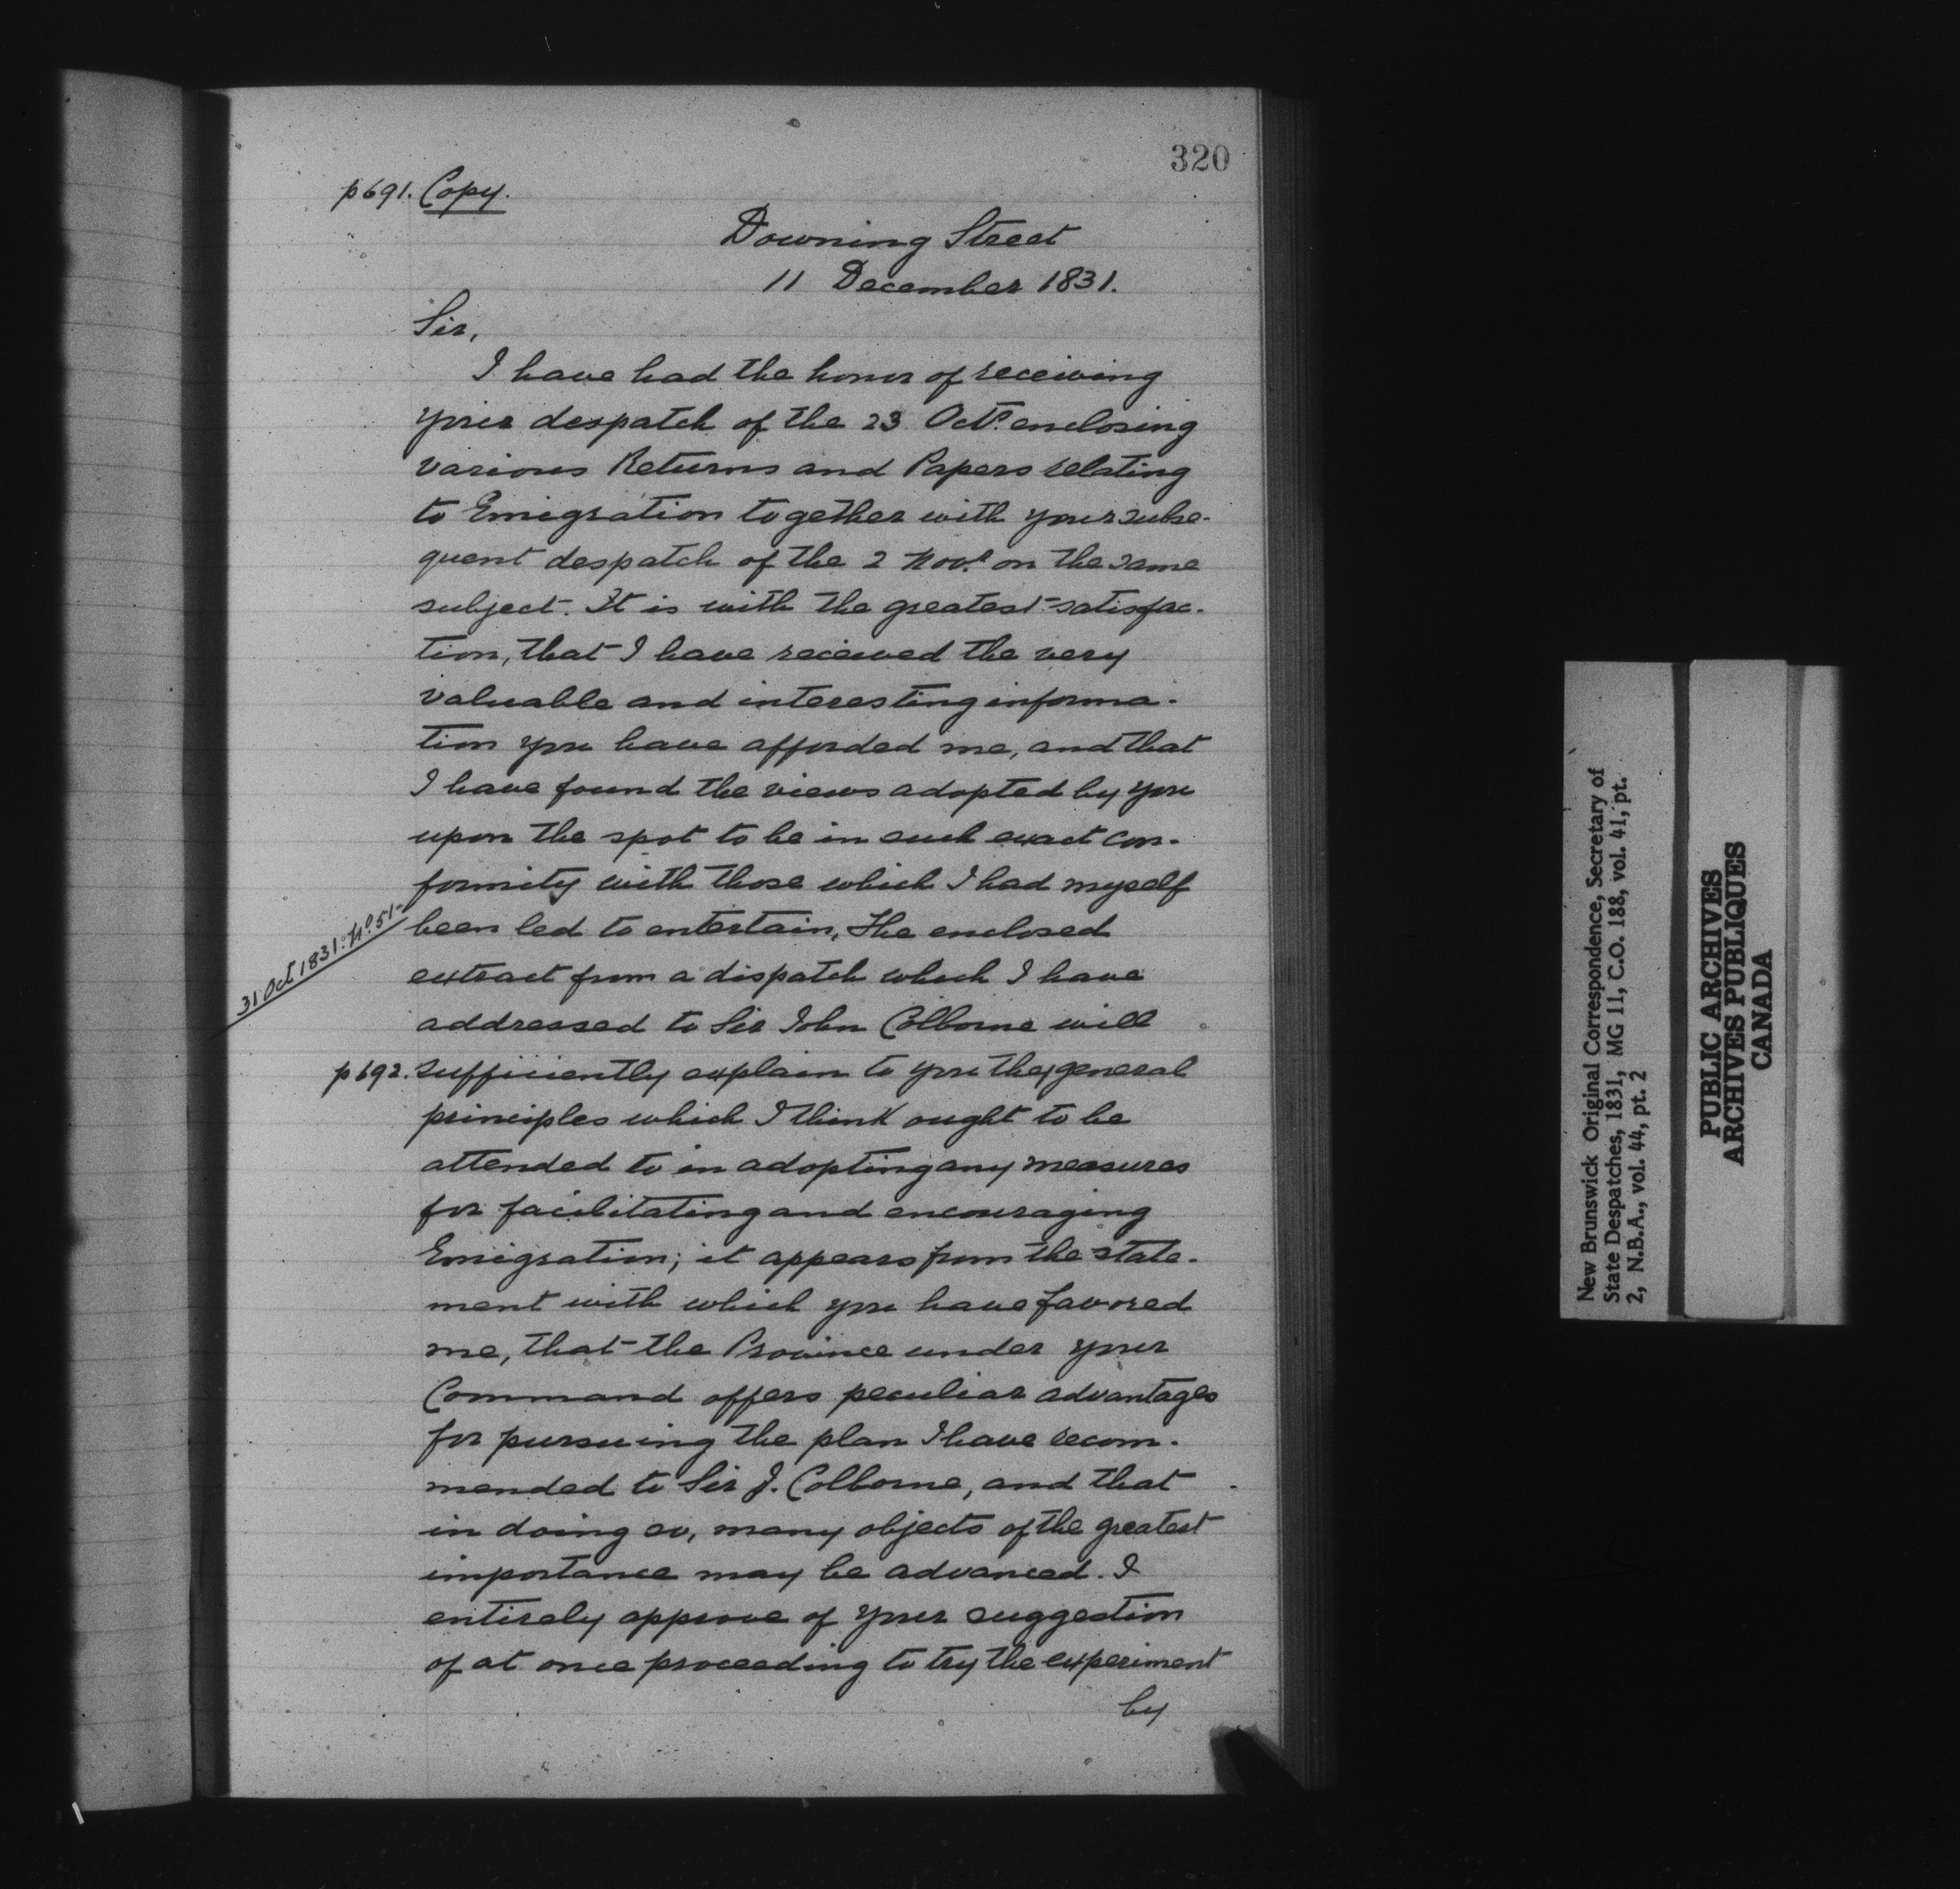 320
p691. Copy.
Downing Street
11 December 1831.
Sir,
I have had the honor of receiving
your despatch of the 23 Octr. enclosing
various Returns and Papers relating
to Emigration together with your subse-
quent despatch of the 2 Novr. on the same
subject. It is with the greatest satisfac-
tion, that I have received the very
valuable and interesting informa-
tion you have afforded me, and that
I have found the views adopted by you
upon the spot to be in such exact con-
formity with those which I had myself
31 Oct 1831: No. 51-
been led to entertain, The enclosed
extract from a dispatch which I have
addressed to Sir John Colborne will
p692. sufficiently explain to you the general
principles which I think ought to be
attended to in adopting any measures
for facilitating and encouraging
Emigration; it appears from the state-
ment with which you have favored
me, that the Province under your
Command offers peculiar advantages
for pursuing the plan I have recom-
mended to Sir J. Colborne, and that
in doing so, many objects of the greatest
importance may be advanced. I
entirely approve of your suggestion
of at once proceeding to try the experiment
by
New Brunswick Original Correspondence, Secretary of
State Despatches, 1831, MG 11, C.O. 188, vol. 41, pt.
2, N.B.A., vol. 44, pt. 2
PUBLIC ARCHIVES
ARCHIVES PUBLIQUES
CANADA